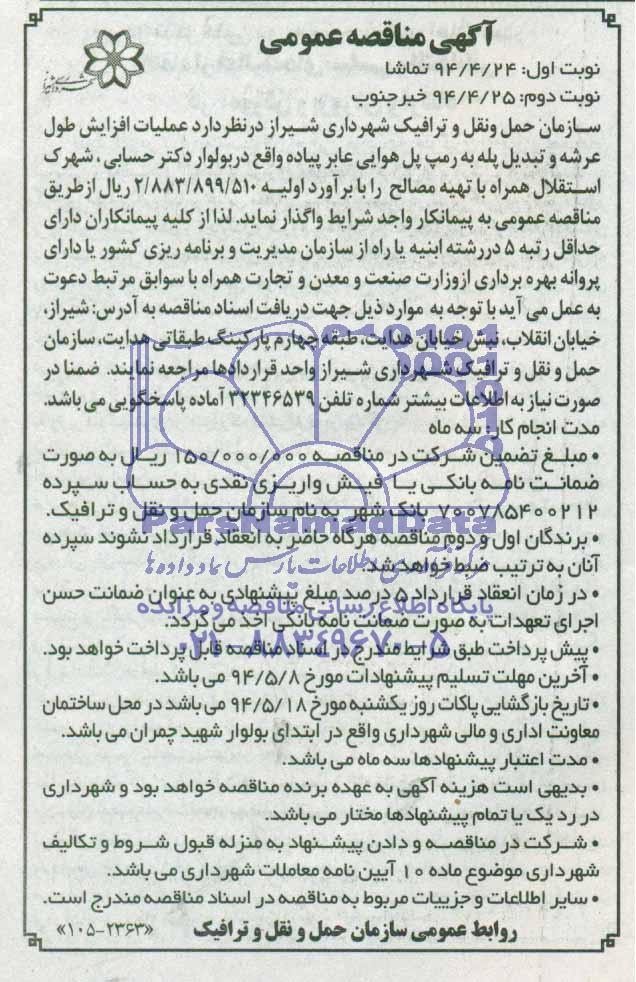 آگهی مناقصه عمومی
نوبت اول: ۹۴/۴/۲۴ تماشا
نوبت دوم: ۹۴/۴/۲۵ خبرجنوب
سازمان حمل ونقل و ترافیک شهرداری شیراز درنظر دارد عملیات افزایش طول
عرشه و تبدیل پله به رمپ پل هوایی عابر پیاده واقع دربولوار دکتر حسابی ، شهرک
استقلال همراه با تهیه مصالح را با برآورد اولیه ۲/۸۸۳/۸۹۹/۵۱۰ ریال ازطریق
مناقصه عمومی به پیمانکار واجد شرایط واگذار نماید. لذا از کلیه پیمانکاران دارای
حداقل رتبه ۵ دررشته ابنیه یا راه از سازمان مدیریت و برنامه ریزی کشور یا دارای
پروانه بهره برداری ازوزارت صنعت و معدن و تجارت همراه با سوابق مرتبط دعوت
به عمل می آید با توجه به موارد ذیل جهت دریافت اسناد مناقصه به آدرس: شیراز،
خیابان انقلاب، نبش خیابان هدایت، طبقه چهارم پارکینگ طبقاتی هدایت، سازمان
حمل و نقل و ترافیک شهرداری شیراز واحد قراردادها مراجعه نمایند. ضمنا در
صورت نیاز به اطلاعات بیشتر شماره تلفن ۳۲۳۴۶۵۳۹ آماده پاسخگویی می باشد.
مدت انجام کار: سه ماه
• مبلغ تضمین شرکت در مناقصه ۱۵۰/۰۰۰/۰۰۰ ریال به صورت
ضمانت نامه بانکی یا فیش واریزی نقدی به حساب سپرده
۷۰۰۷۸۵۴۰۰۲۱۲ بانک شهر به نام سازمان حمل و نقل و ترافیک.
ParsNamadData
• برندگان اول و دوم مناقصه هرگاه حاضر به انعقاد قرارداد نشوند سپرده
آنان به ترتیب ضبط خواهد شد.
پایگاه اطلاع رسانی مناقصه و مزایده
• در زمان انعقاد قرارداد ۵ درصد مبلغ پیشنهادی به عنوان ضمانت حسن
اجرای تعهدات به صورت ضمانت نامه بانکی اخذ می گردد.
۰۲۱-۸۸۳۴۹۶۷۰-۵
• پیش پرداخت طبق شرایط مندرج در اسناد مناقصه قابل پرداخت خواهد بود.
• آخرین مهلت تسلیم پیشنهادات مورخ ۹۴/۵/۸ می باشد.
• تاریخ بازگشایی پاکات روز یکشنبه مورخ ۹۴/۵/۱۸ می باشد در محل ساختمان
معاونت اداری و مالی شهرداری واقع در ابتدای بولوار شهید چمران می باشد.
• مدت اعتبار پیشنهادها سه ماه می باشد.
• بدیهی است هزینه آگهی به عهده برنده مناقصه خواهد بود و شهرداری
در رد یک یا تمام پیشنهادها مختار می باشد.
• شرکت در مناقصه و دادن پیشنهاد به منزله قبول شروط و تکالیف
شهرداری موضوع ماده ۱۰ آیین نامه معاملات شهرداری می باشد.
• سایر اطلاعات و جزییات مربوط به مناقصه در اسناد مناقصه مندرج است.
روابط عمومی سازمان حمل و نقل و ترافیک «۱۰۵-۲۳۶۳»